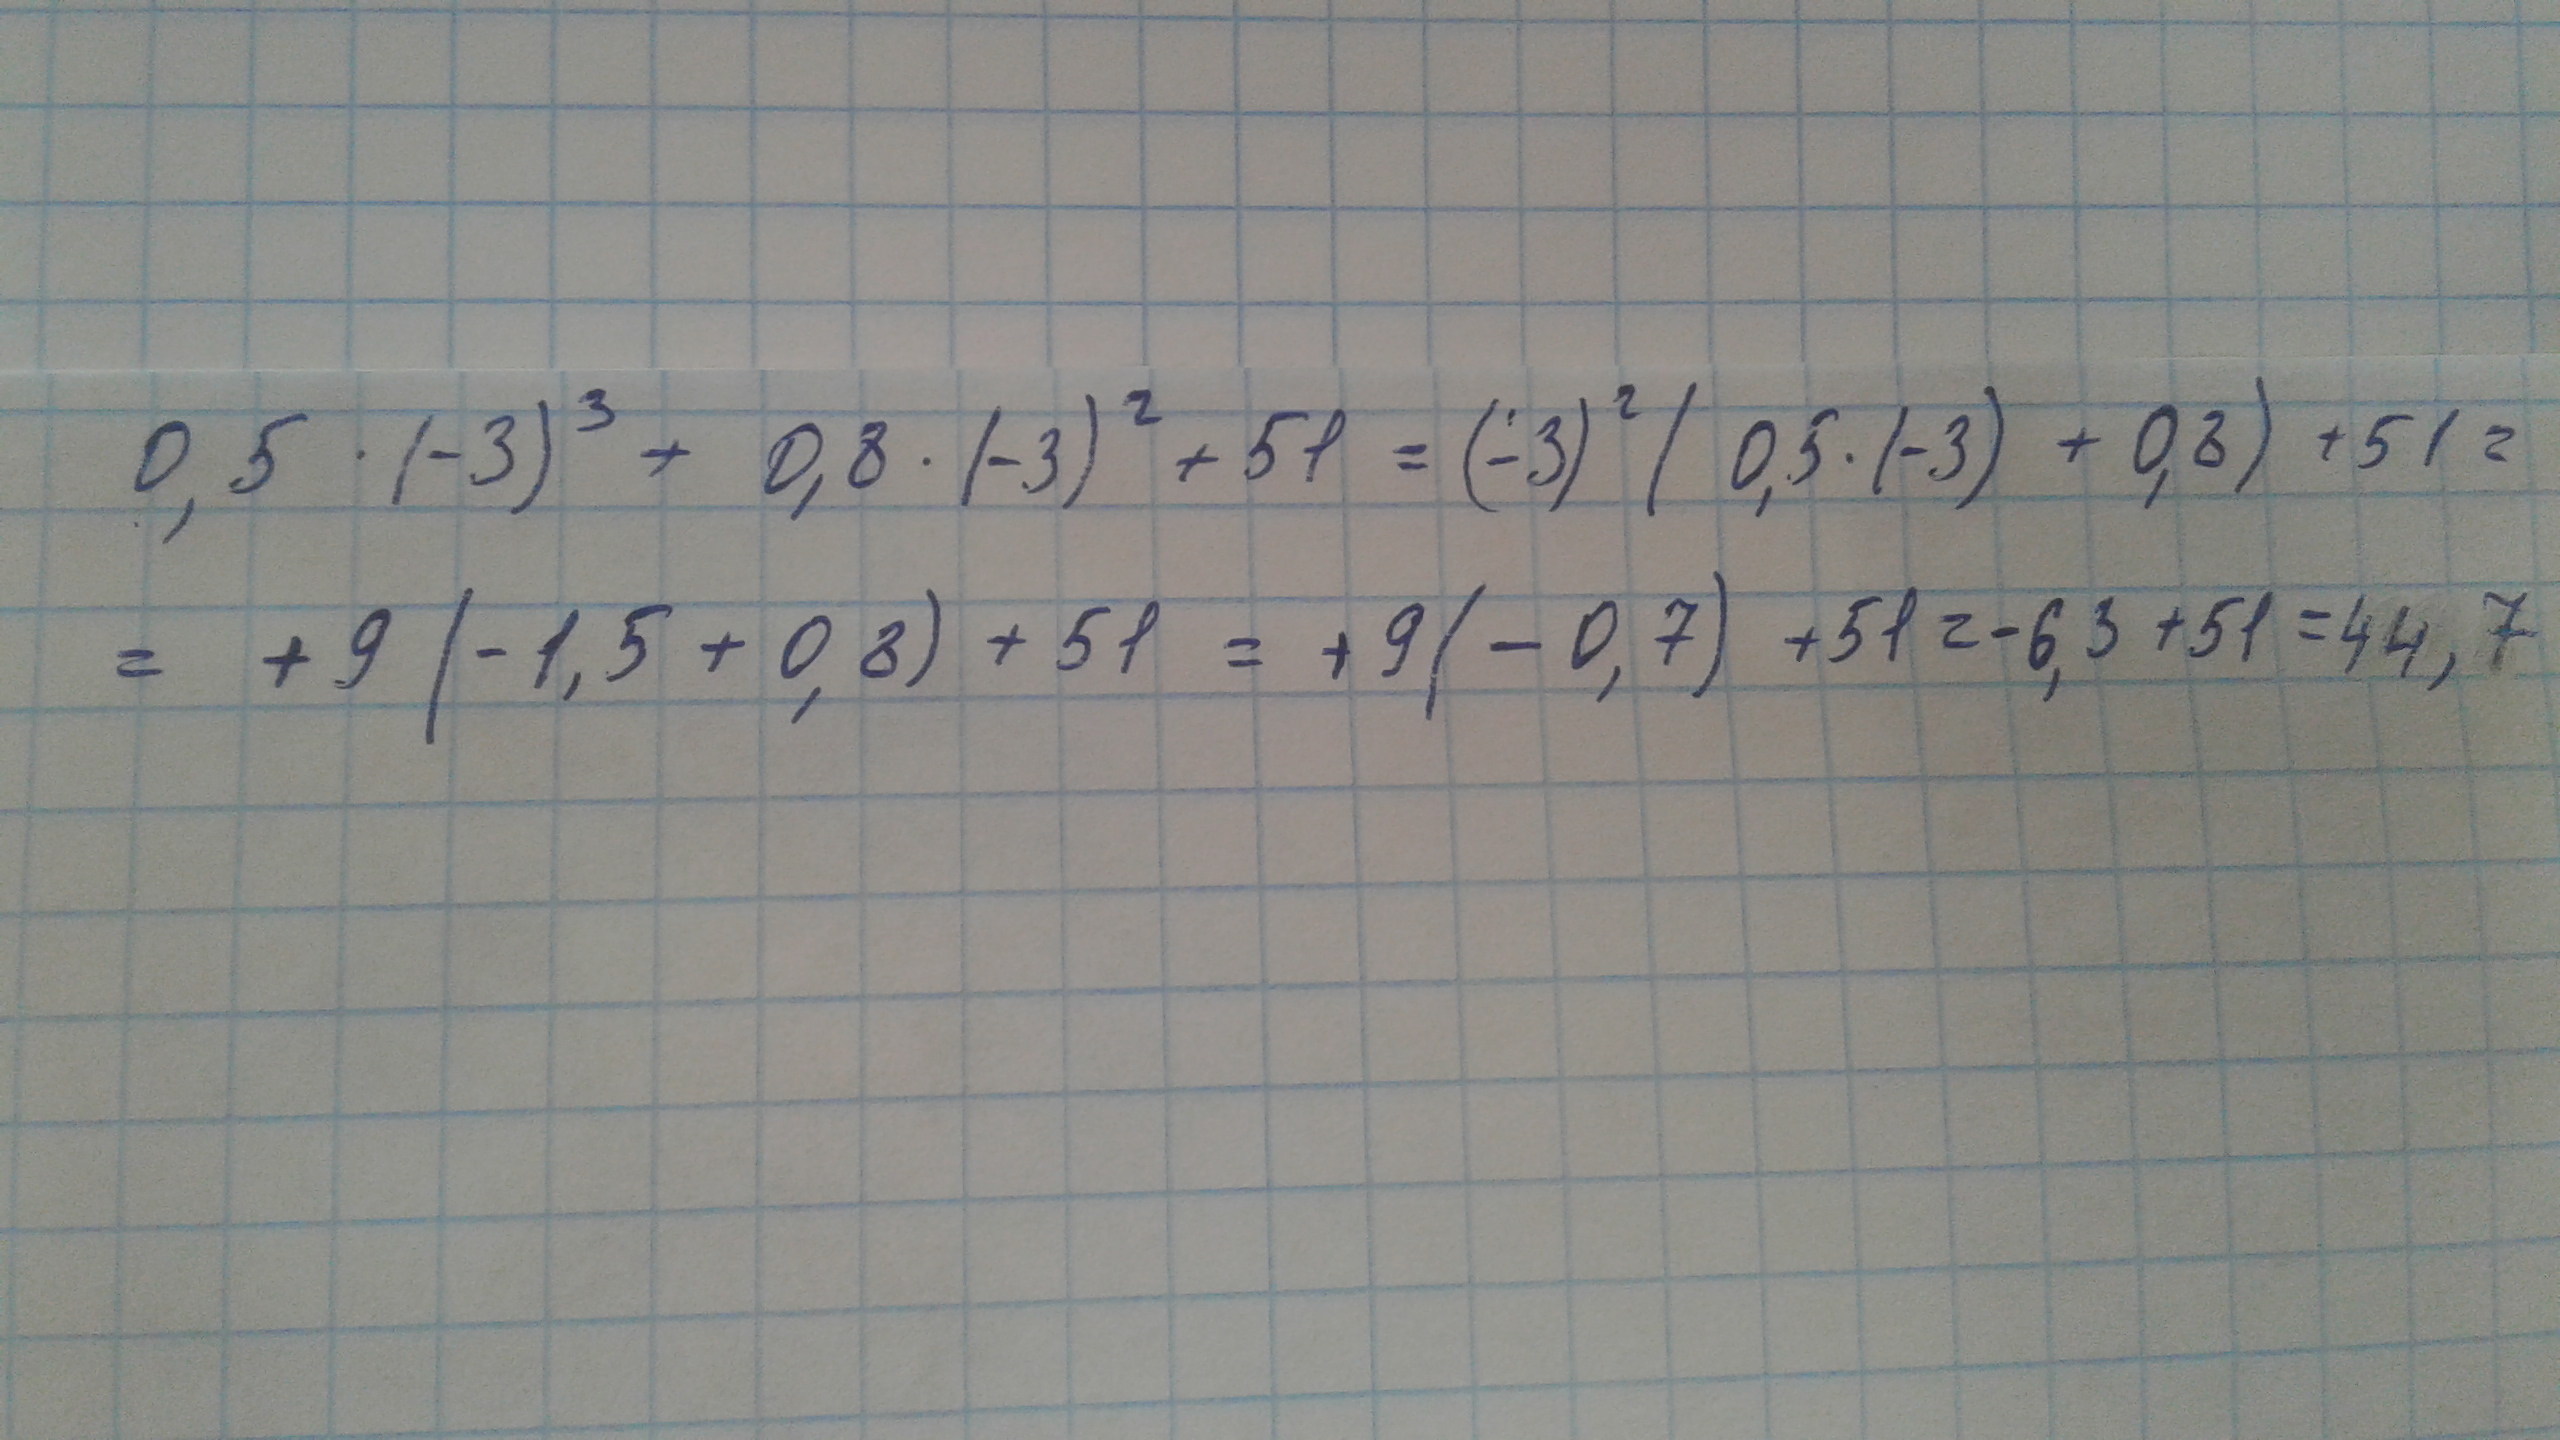 0,5 · (-3)³ + 0,8 · (-3)² + 51 = (-3)² ( 0,5 · (-3) + 0,8) + 51 =
= + 9 (-1,5 + 0,8) + 51 = + 9 (- 0,7) + 51 = -6,3 + 51 = 44,7